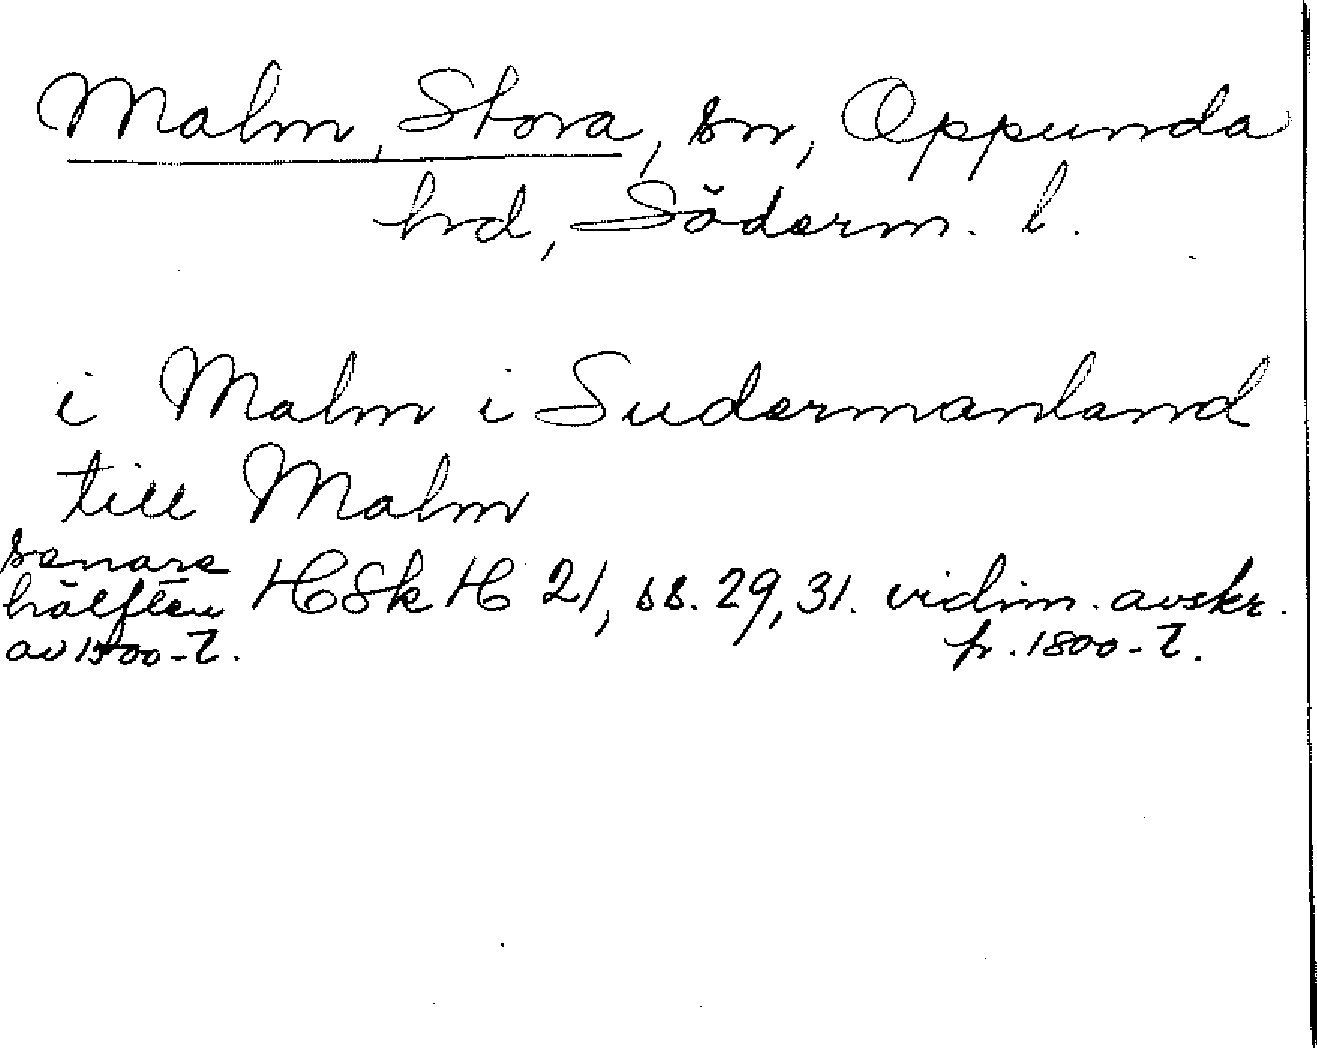 Malm, Stora, sn, Oppunda
hd, Söderm. l.
i Malm i Sudermanland
till Malm
senare
hälften
av 1500-t.
HSk H 21, ss. 29, 31. vidim. avskr.
fr. 1800-t.